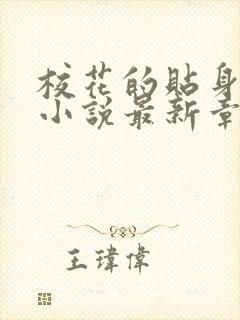 校花的貼身
小說最新章
王瑋偉